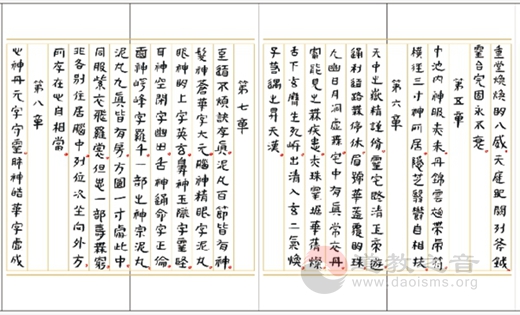 重堂煥煥明八威天庭地關列斧鉞
靈台盤固永不衰
第五章
中池內神服赤朱丹錦雲袍帶虎符
橫徑三寸神所居隱芝翳鬱自相扶
第六章
天中之嶽精謹修靈宅既清玉帝遊
通利道路無停休眉號華蓋覆明珠
九幽日月洞虛無宅中有真常衣丹
審能見之無疾患赤珠靈裙華蒨燦
舌下玄膺生死岸出清入玄二氣煥
子若遇之昇天漢
第七章
至道不煩訣存真泥丸百節皆有神
髮神蒼華字太元腦神精根字泥丸
眼神明上字英玄鼻神玉壟字靈堅
耳神空閑字幽田舌神通命字正倫
齒神崿峰字羅千一部之神宗泥丸
泥丸九真皆有房方圓一寸處此中
同服紫衣飛羅裳但思一部壽無窮
非各別住居腦中列位次坐向外方
所存在心自相當
第八章
心神丹元字守靈肺神皓華字虛成
道教之音
www.daoisms.org